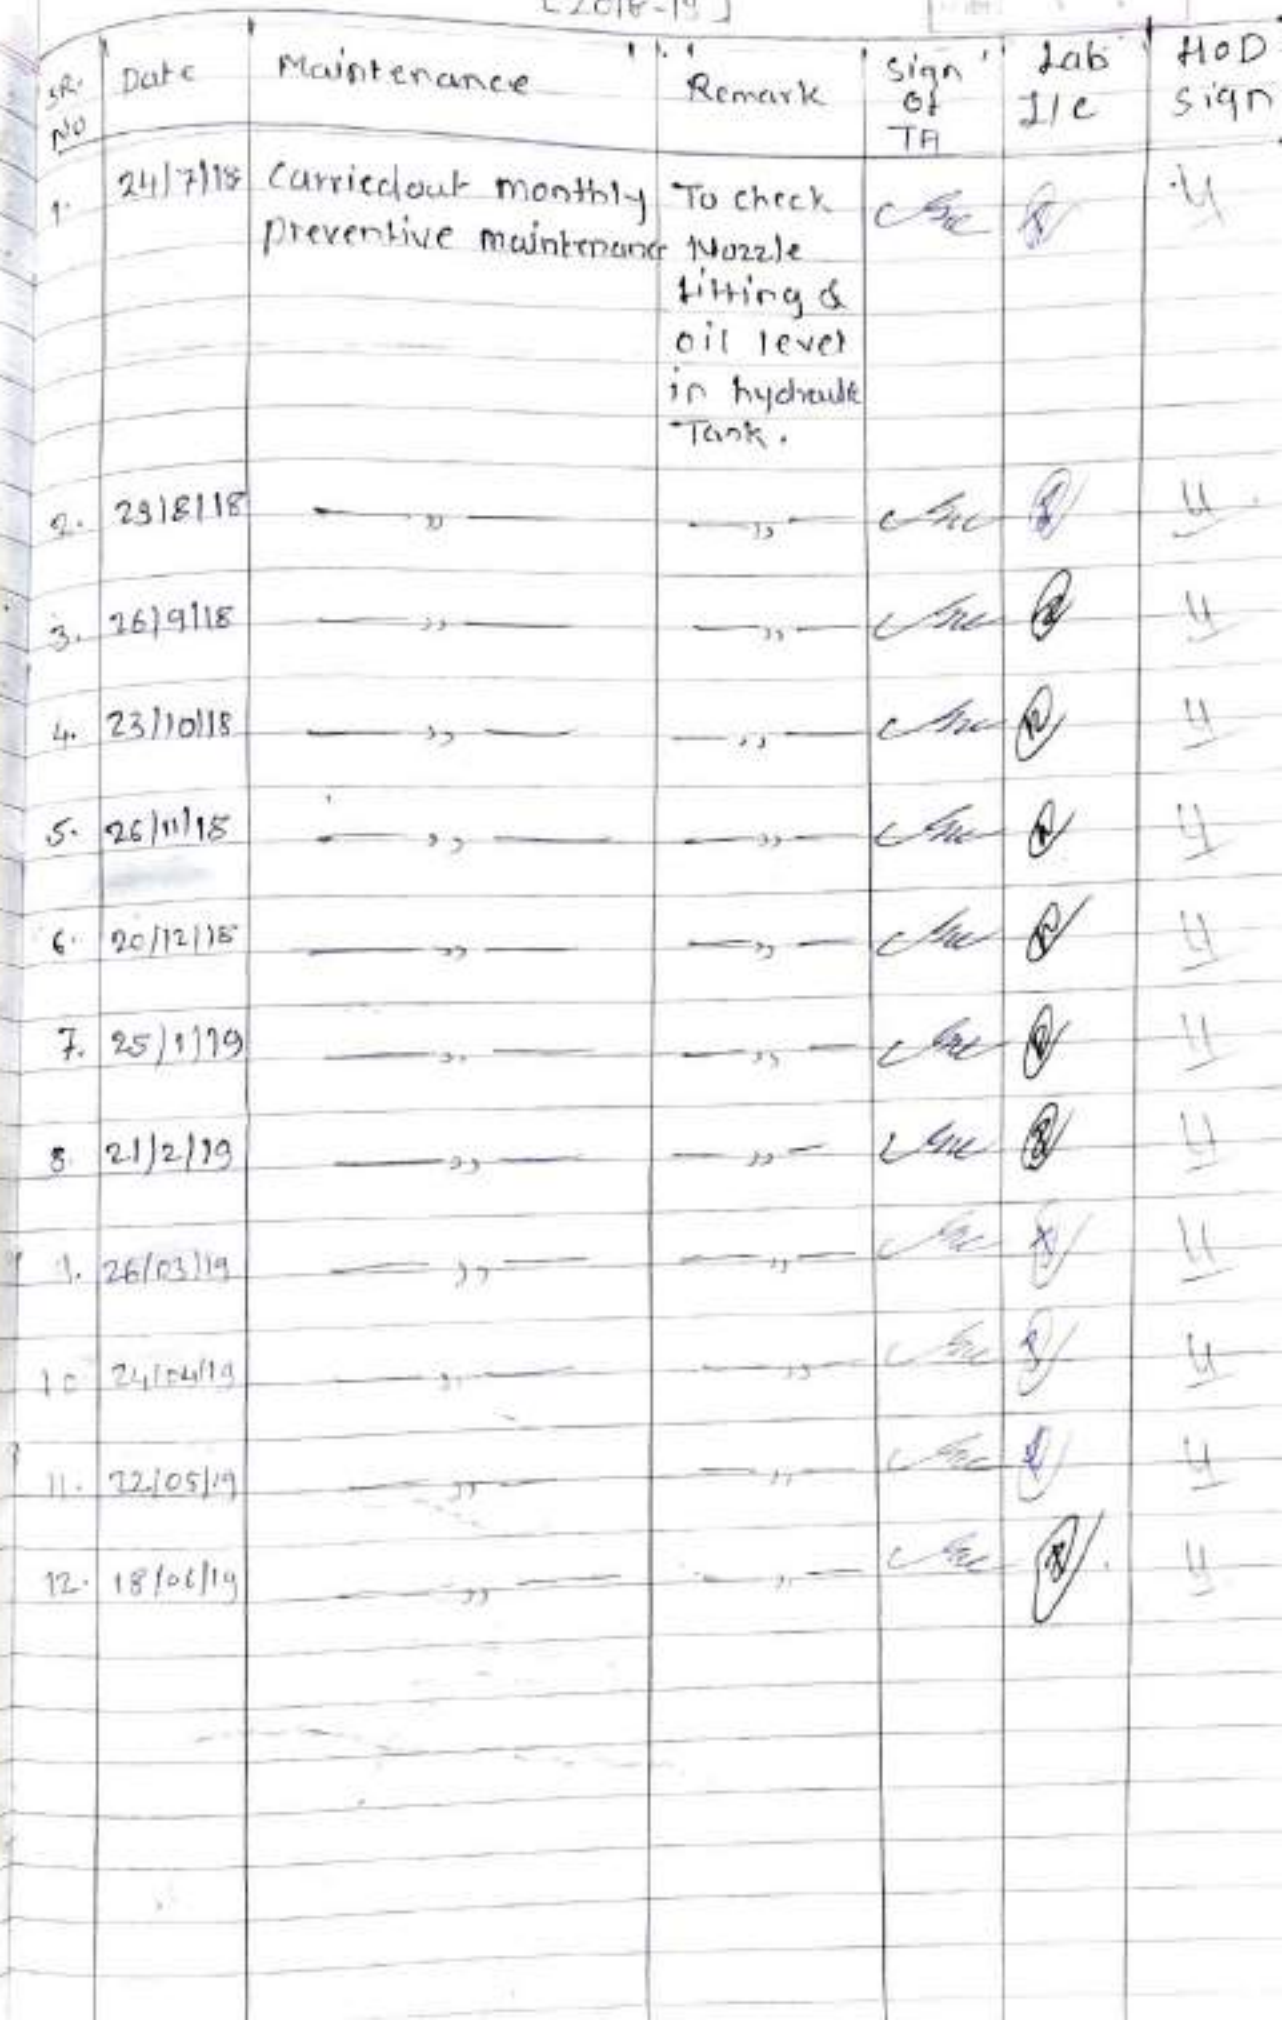 [2018-19]
SR. NO Date Maintenance Remark Sign of TA Lab I/c HOD sign
1. 24/7/18 Carriedout monthly To check
preventive maintenance Nozzle
fitting &
oil level
in hydraulic
Tank.
2. 29/8/18 — ,, — — ,, —
3. 26/9/18 — ,, — — ,, —
4. 23/10/18 — ,, — — ,, —
5. 26/11/18 — ,, — — ,, —
6. 20/12/18 — ,, — — ,, —
7. 25/1/19 — ,, — — ,, —
8. 21/2/19 — ,, — — ,, —
9. 26/03/19 — ,, — — ,, —
10 24/04/19 — ,, — — ,, —
11. 22/05/19 — ,, — — ,, —
12. 18/06/19 — ,, — — ,, —